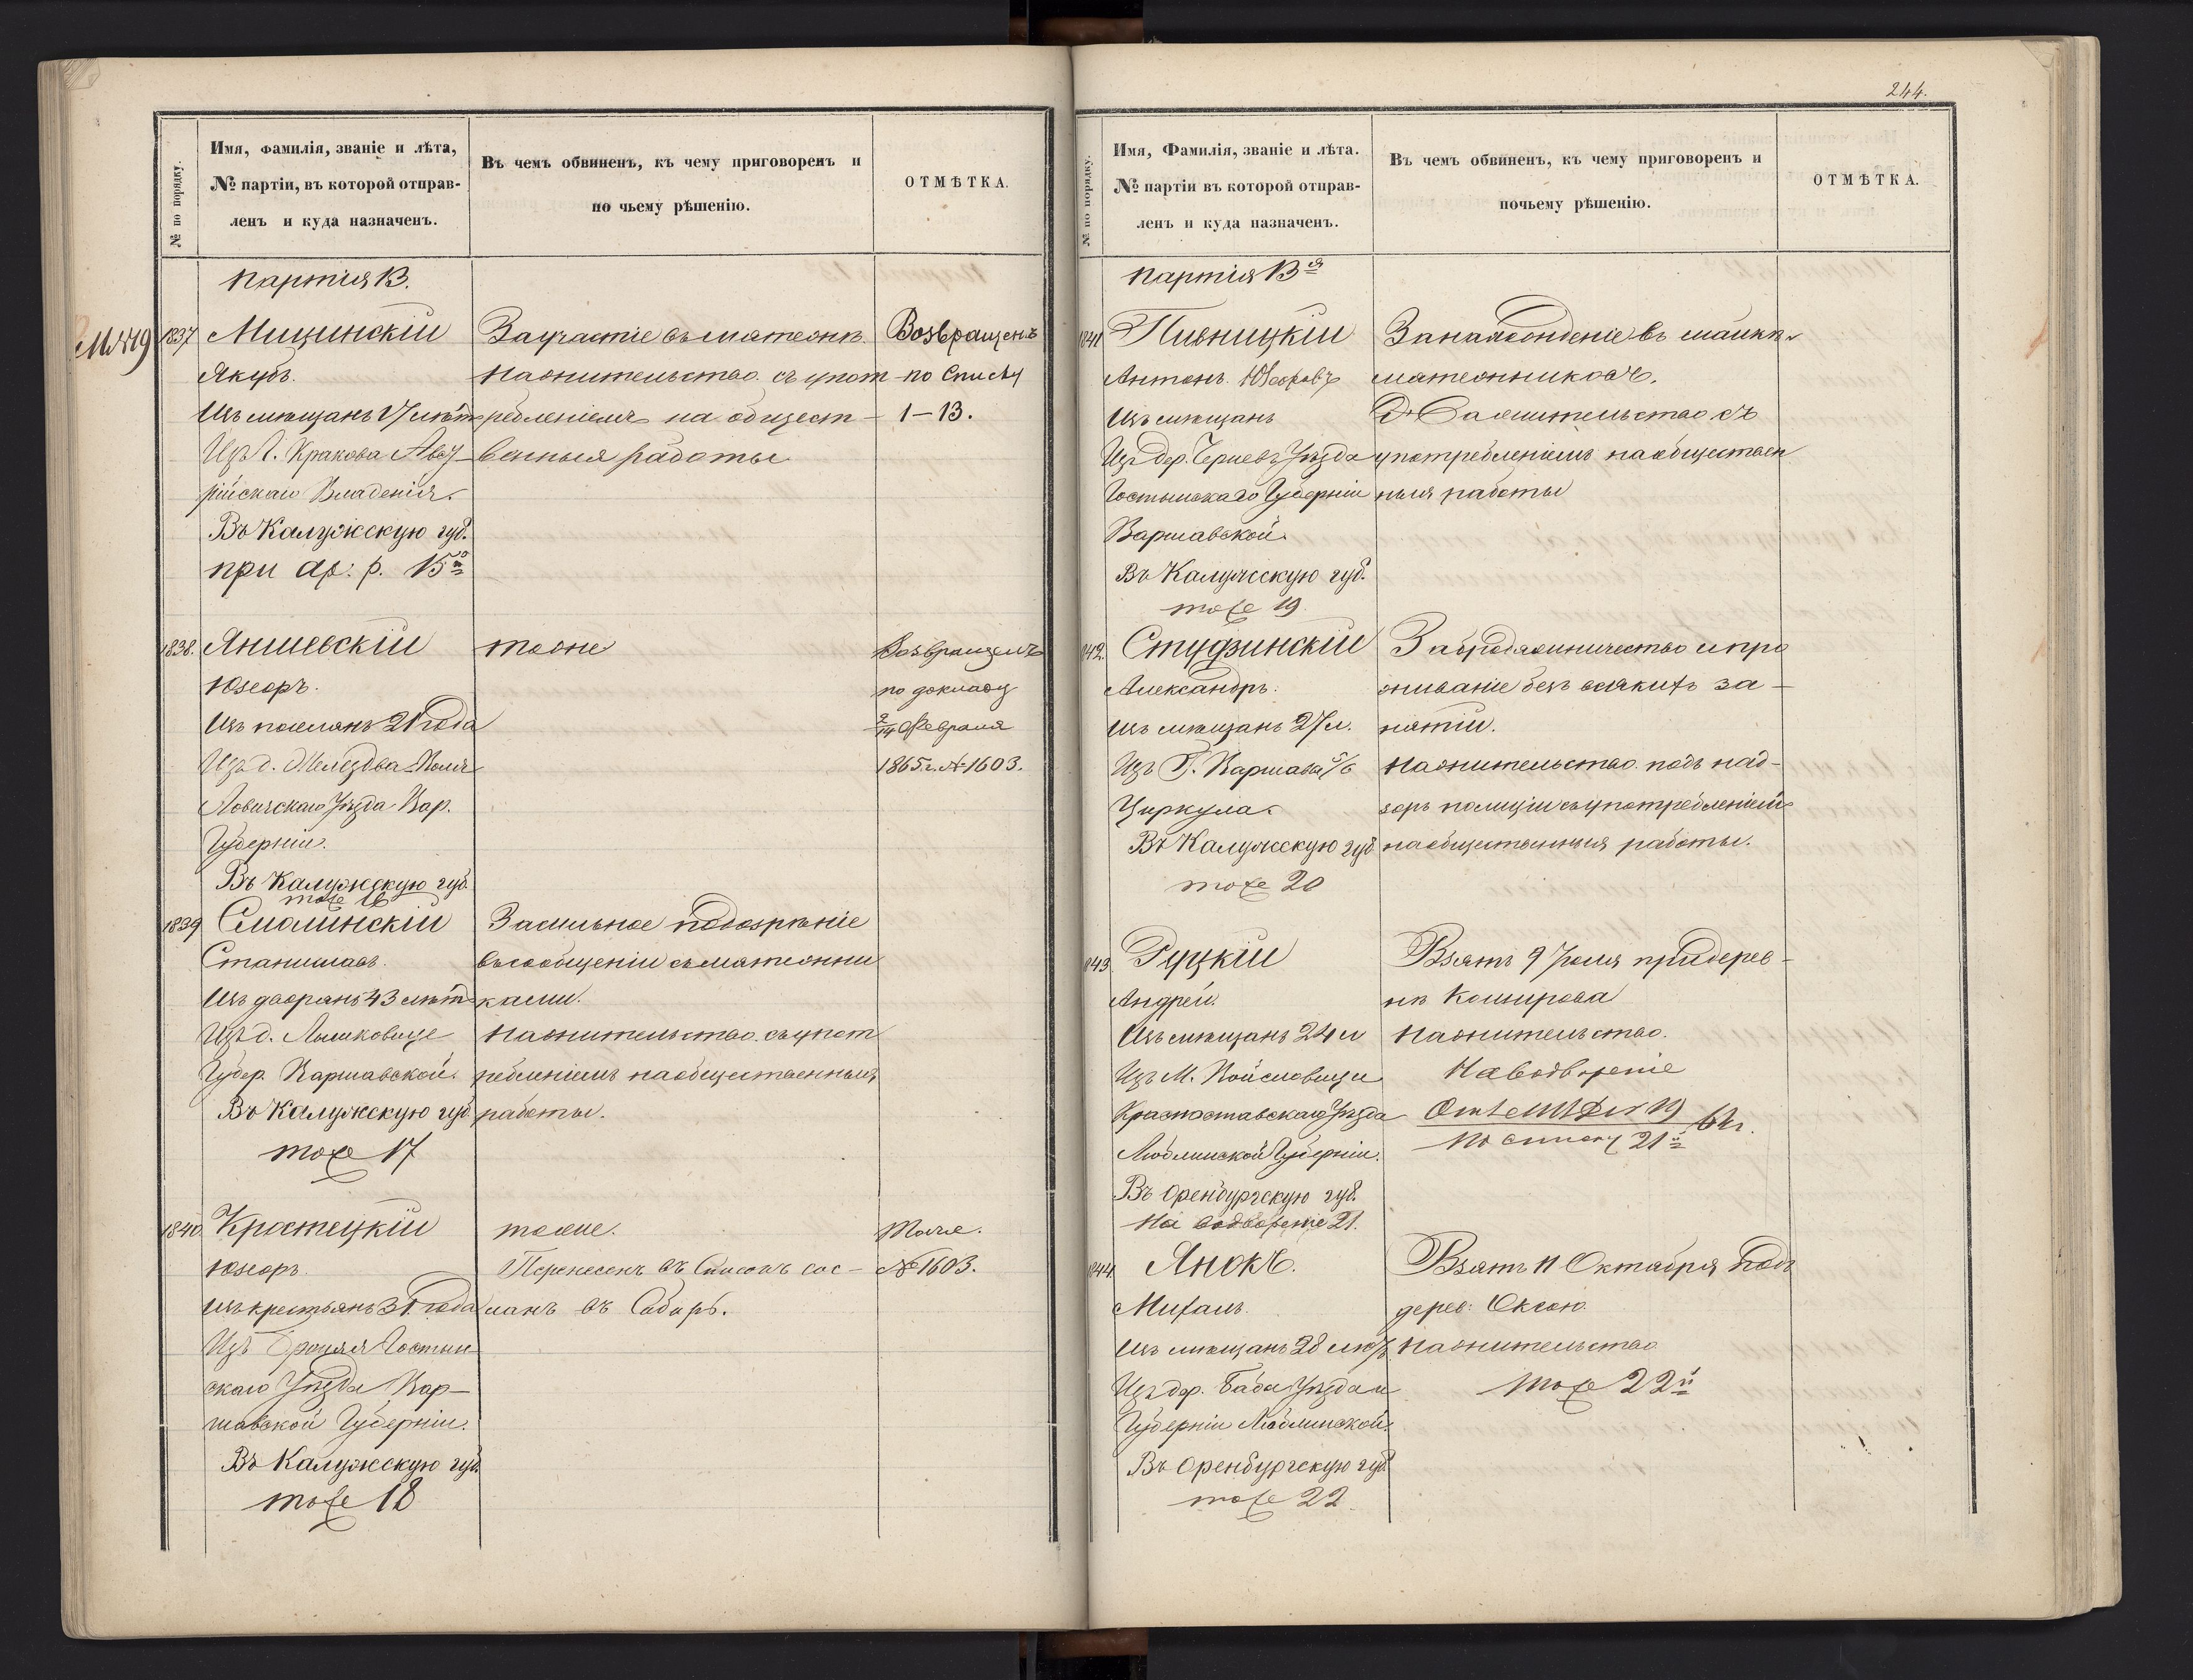 244.
№ по порядку.
Имя, фамилія, званіе и лѣта,
№ партіи, въ которой отправ-
ленъ и куда назначенъ.
Въ чемъ обвиненъ, къ чему приговоренъ и
по чьему рѣшенію.
ОТМѢТКА.
Партія 13.
1837
Мицинскій
Якубъ.
Изъ мѣщанъ 17 лѣтъ
Изъ Г. Кракова Авст-
рійскаго Владенія.
Въ Калужскую губ.
при ар: р. 15
За участіе въ мятежѣ
На жительство съ упот-
ребленіемъ на общест-
венныя работы
Возвращенъ
по Списку
1-13.
1838.
Янишевскій
Юзефъ.
Изъ поселянъ 21 года
Ловичскаго Уѣзда Вар.
Губерніи.
Въ Калужскую губ.
тоже 16
тоже
Возвращенъ
по докладу
2/14 Февраля
1865 г. № 1603.
1839
Смолинскій
Станиславъ.
Изъ дворянъ 43 лѣтъ
Изъ д. Лышковице
Губер. Варшавской.
Въ Калужскую губ
тоже 17
За сильное подозрѣніе
въ сообщеніи съ мятежни
ками.
На жительство съ упот
ребленіемъ на общественныя
работы.
1840.
Кростецкій
Юзефъ.
Изъ крестьянъ 31 года
Изъ Гостын-
скаго Уѣзда Вар-
шавской Губерніи.
Въ Калужскую губ.
тоже 18
тоже.
Перенесенъ въ Списокъ сос-
ланъ въ Сибирь.
Тоже.
№ 1603.
№ по порядку.
Имя, Фамилія, званіе и лѣта.
№ партіи въ которой отправ-
ленъ и куда назначенъ.
Въ чемъ обвиненъ, къ чему приговоренъ и
почьему рѣшенію.
ОТМѢТКА.
Партія 13я
1841
Пивницкій
Антонъ
Изъ мѣщанъ
Изъ дер. Черневъ Уѣзда
Гостынскаго Губерніи
Варшавской.
Въ Калужскую губ.
тоже 19
За нахожденіе въ шайкѣ
мятежниковъ.
На жительство съ
употребленіемъ на обществен
ныя работы
1842.
Студзинскій
Александръ.
Изъ мѣщанъ 27 л.
Изъ Г. Варшавы 5/6
Циркула.
Въ Калужскую губ
тоже 20
За бродяжничество и про
живаніе безъ всякихъ за-
нятій.
На жительство подъ над-
зоръ полиціи съ употребленіемъ
на общественныя работы.
1843
Руцкій
Андрей.
Изъ мѣщанъ 24 л
Изъ М. Войсловицы
Красноставскаго Уѣзда
Люблинской Губерніи.
Въ Оренбургскую губ.
На водвореніе 21.
Взятъ 9 Іюля при дерев-
нѣ
На жительство.
На водвореніе
По списку 21
1844
Янокъ.
Михалъ.
Изъ мѣщанъ 28 лѣтъ
Изъ дер. Баба Уѣзда и
Губерніи Люблинской.
Въ Оренбургскую губ
тоже 22.
Взятъ 11 Октября подъ
дерев:
На жительство
тоже 22